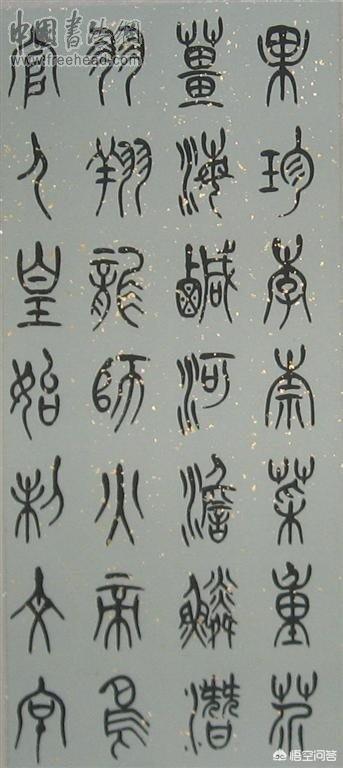 果珍李柰菜重芥
薑海鹹河澹鱗潛
羽翔龍師火帝鳥
官人皇始制文字
www.freehead.com
悟空问答